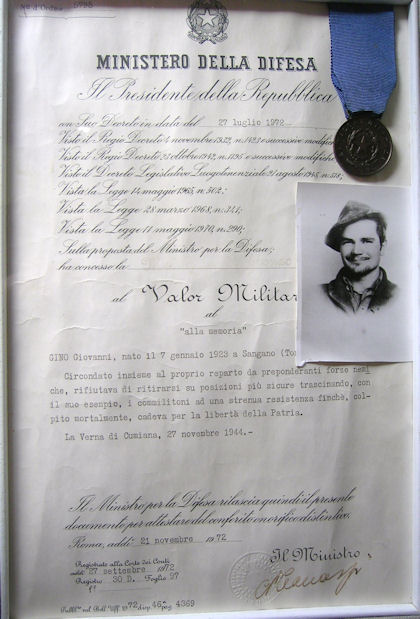 N° d'Ordine 5798
MINISTERO DELLA DIFESA
Il Presidente della Repubblica
con Suo Decreto in data del 27 luglio 1972
Visto il Regio Decreto 4 novembre 1932, n. 1423 e successive modifica
Visto il Regio Decreto 23 ottobre 1942, n. 1195 e successive modifiche
Visto il Decreto Legislativo Luogotenenziale 21 agosto 1945, n. 518;
Vista la Legge 14 maggio 1965, n. 502;
Vista la Legge 28 marzo 1968, n. 341;
Vista la Legge 11 maggio 1970, n. 290;
Sulla proposta del Ministro per la Difesa;
ha concesso la
al Valor Militar
al
"alla memoria"
GINO Giovanni, nato il 7 gennaio 1923 a Sangano (To
Circondato insieme al proprio reparto da preponderanti forze nemi
che, rifiutava di ritirarsi su posizioni più sicure trascinando, con
il suo esempio, i commilitoni ad una strenua resistenza finchè, col-
pito mortalmente, cadeva per la libertà della Patria.
La Verna di Cumiana, 27 novembre 1944.-
Il Ministro per la Difesa rilascia quindi il presente
documento per attestare del conferito onorifico distintivo.
Roma, addì 21 novembre 1972
Il Ministro
Registrato alla Corte dei Conti
addì 27 settembre 1972
Registro 30 D. Foglio 97
Pubbl. nel Boll. Uff. 1972 disp. 46^ pag. 4369